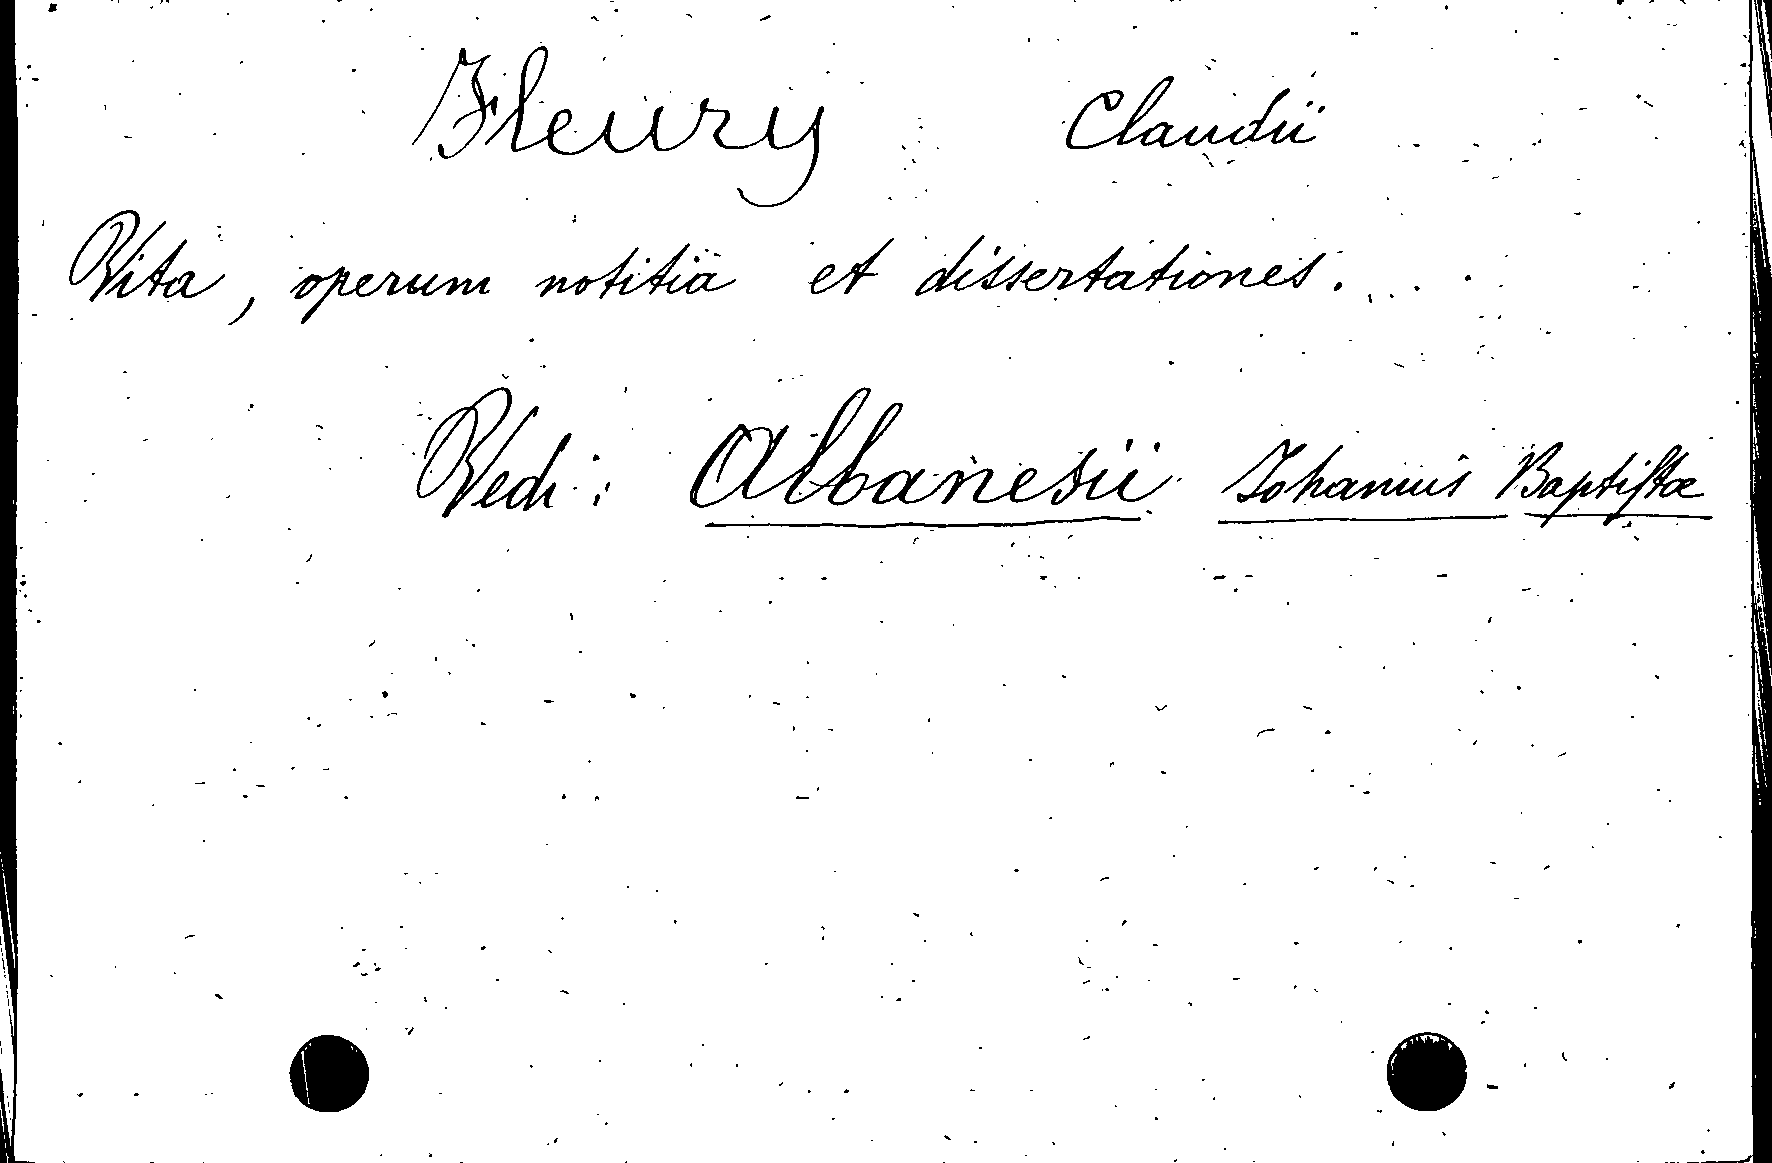 Fleury Claudii
Vita, operum notitia et dissertationes...
Vedi: Albanesii Johannis Baptistae